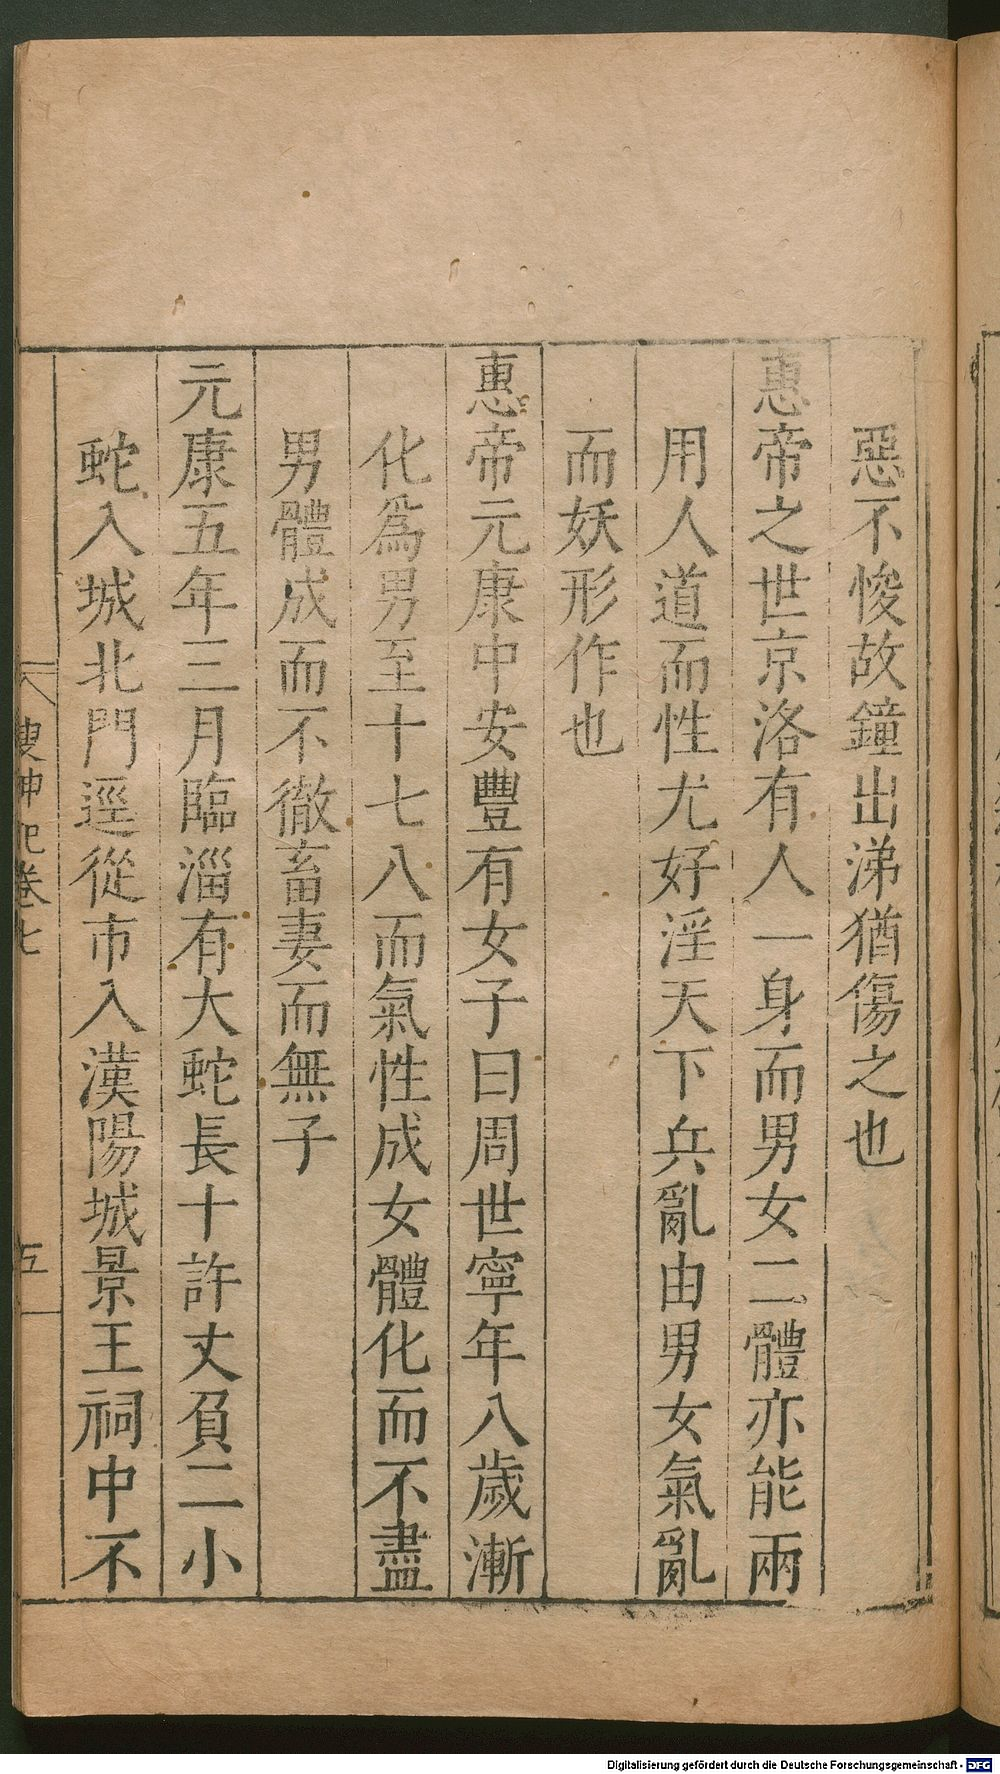 惡不悛故鐘出涕猶傷之也
惠帝之世京洛有人一身而男女二體亦能兩
用人道而性尤好淫天下兵亂由男女氣亂
而妖形作也
惠帝元康中安豐有女子曰周世寧年八歲漸
化爲男至十七八而氣性成女體化而不盡
男體成而不徹畜妻而無子
元康五年三月臨淄有大蛇長十許丈負二小
蛇入城北門逕從市入漢陽城景王祠中不
搜神記卷七
五
Digitalisierung gefördert durch die Deutsche Forschungsgemeinschaft - DFG